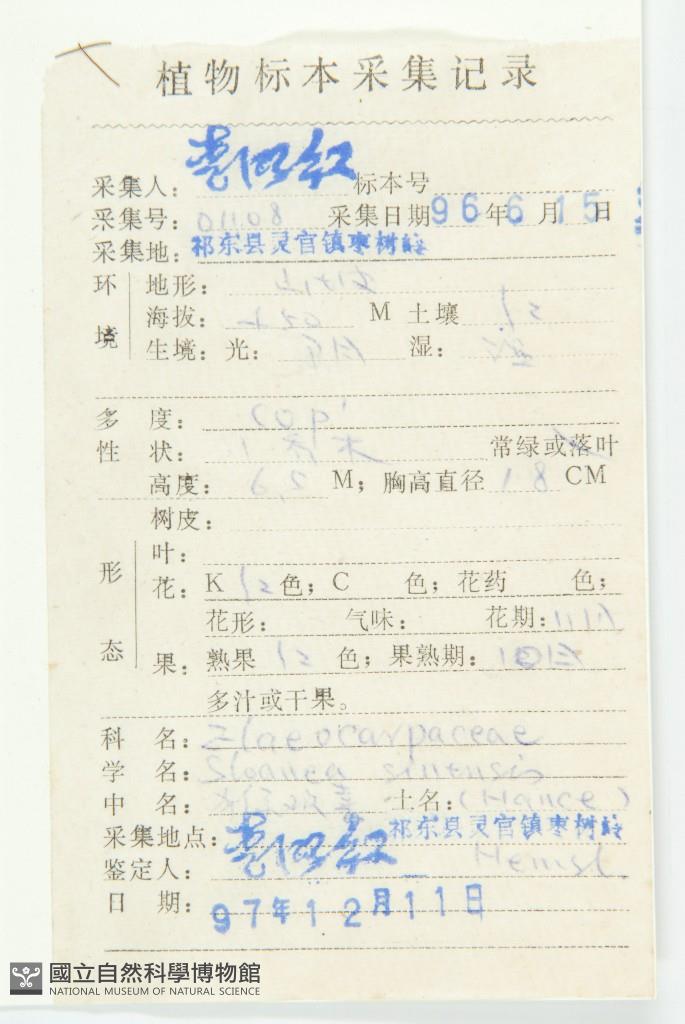 植物标本采集记录
采集人： 标本号
采集号：01108 采集日期 96年6月15日
采集地：祁东县灵官镇枣树岭
环境 地形：
海拔： 450 M 土壤 红
生境：光： 湿：
多度： cop'
性状： 乔木 常绿或落叶
高度： 6.5 M； 胸高直径 18 CM
树皮：
形态 叶：
花： K 红色； C 色； 花药 色；
花形： 气味： 花期：
果： 熟果 红 色； 果熟期：10月
多汁或干果。
科名： Elaeocarpaceae
学名： Sloanea sinensis
中名： 土名： (Hance)
采集地点： 祁东县灵官镇枣树岭
鉴定人： Hemsl.
日期： 97年12月11日
國立自然科學博物館
NATIONAL MUSEUM OF NATURAL SCIENCE